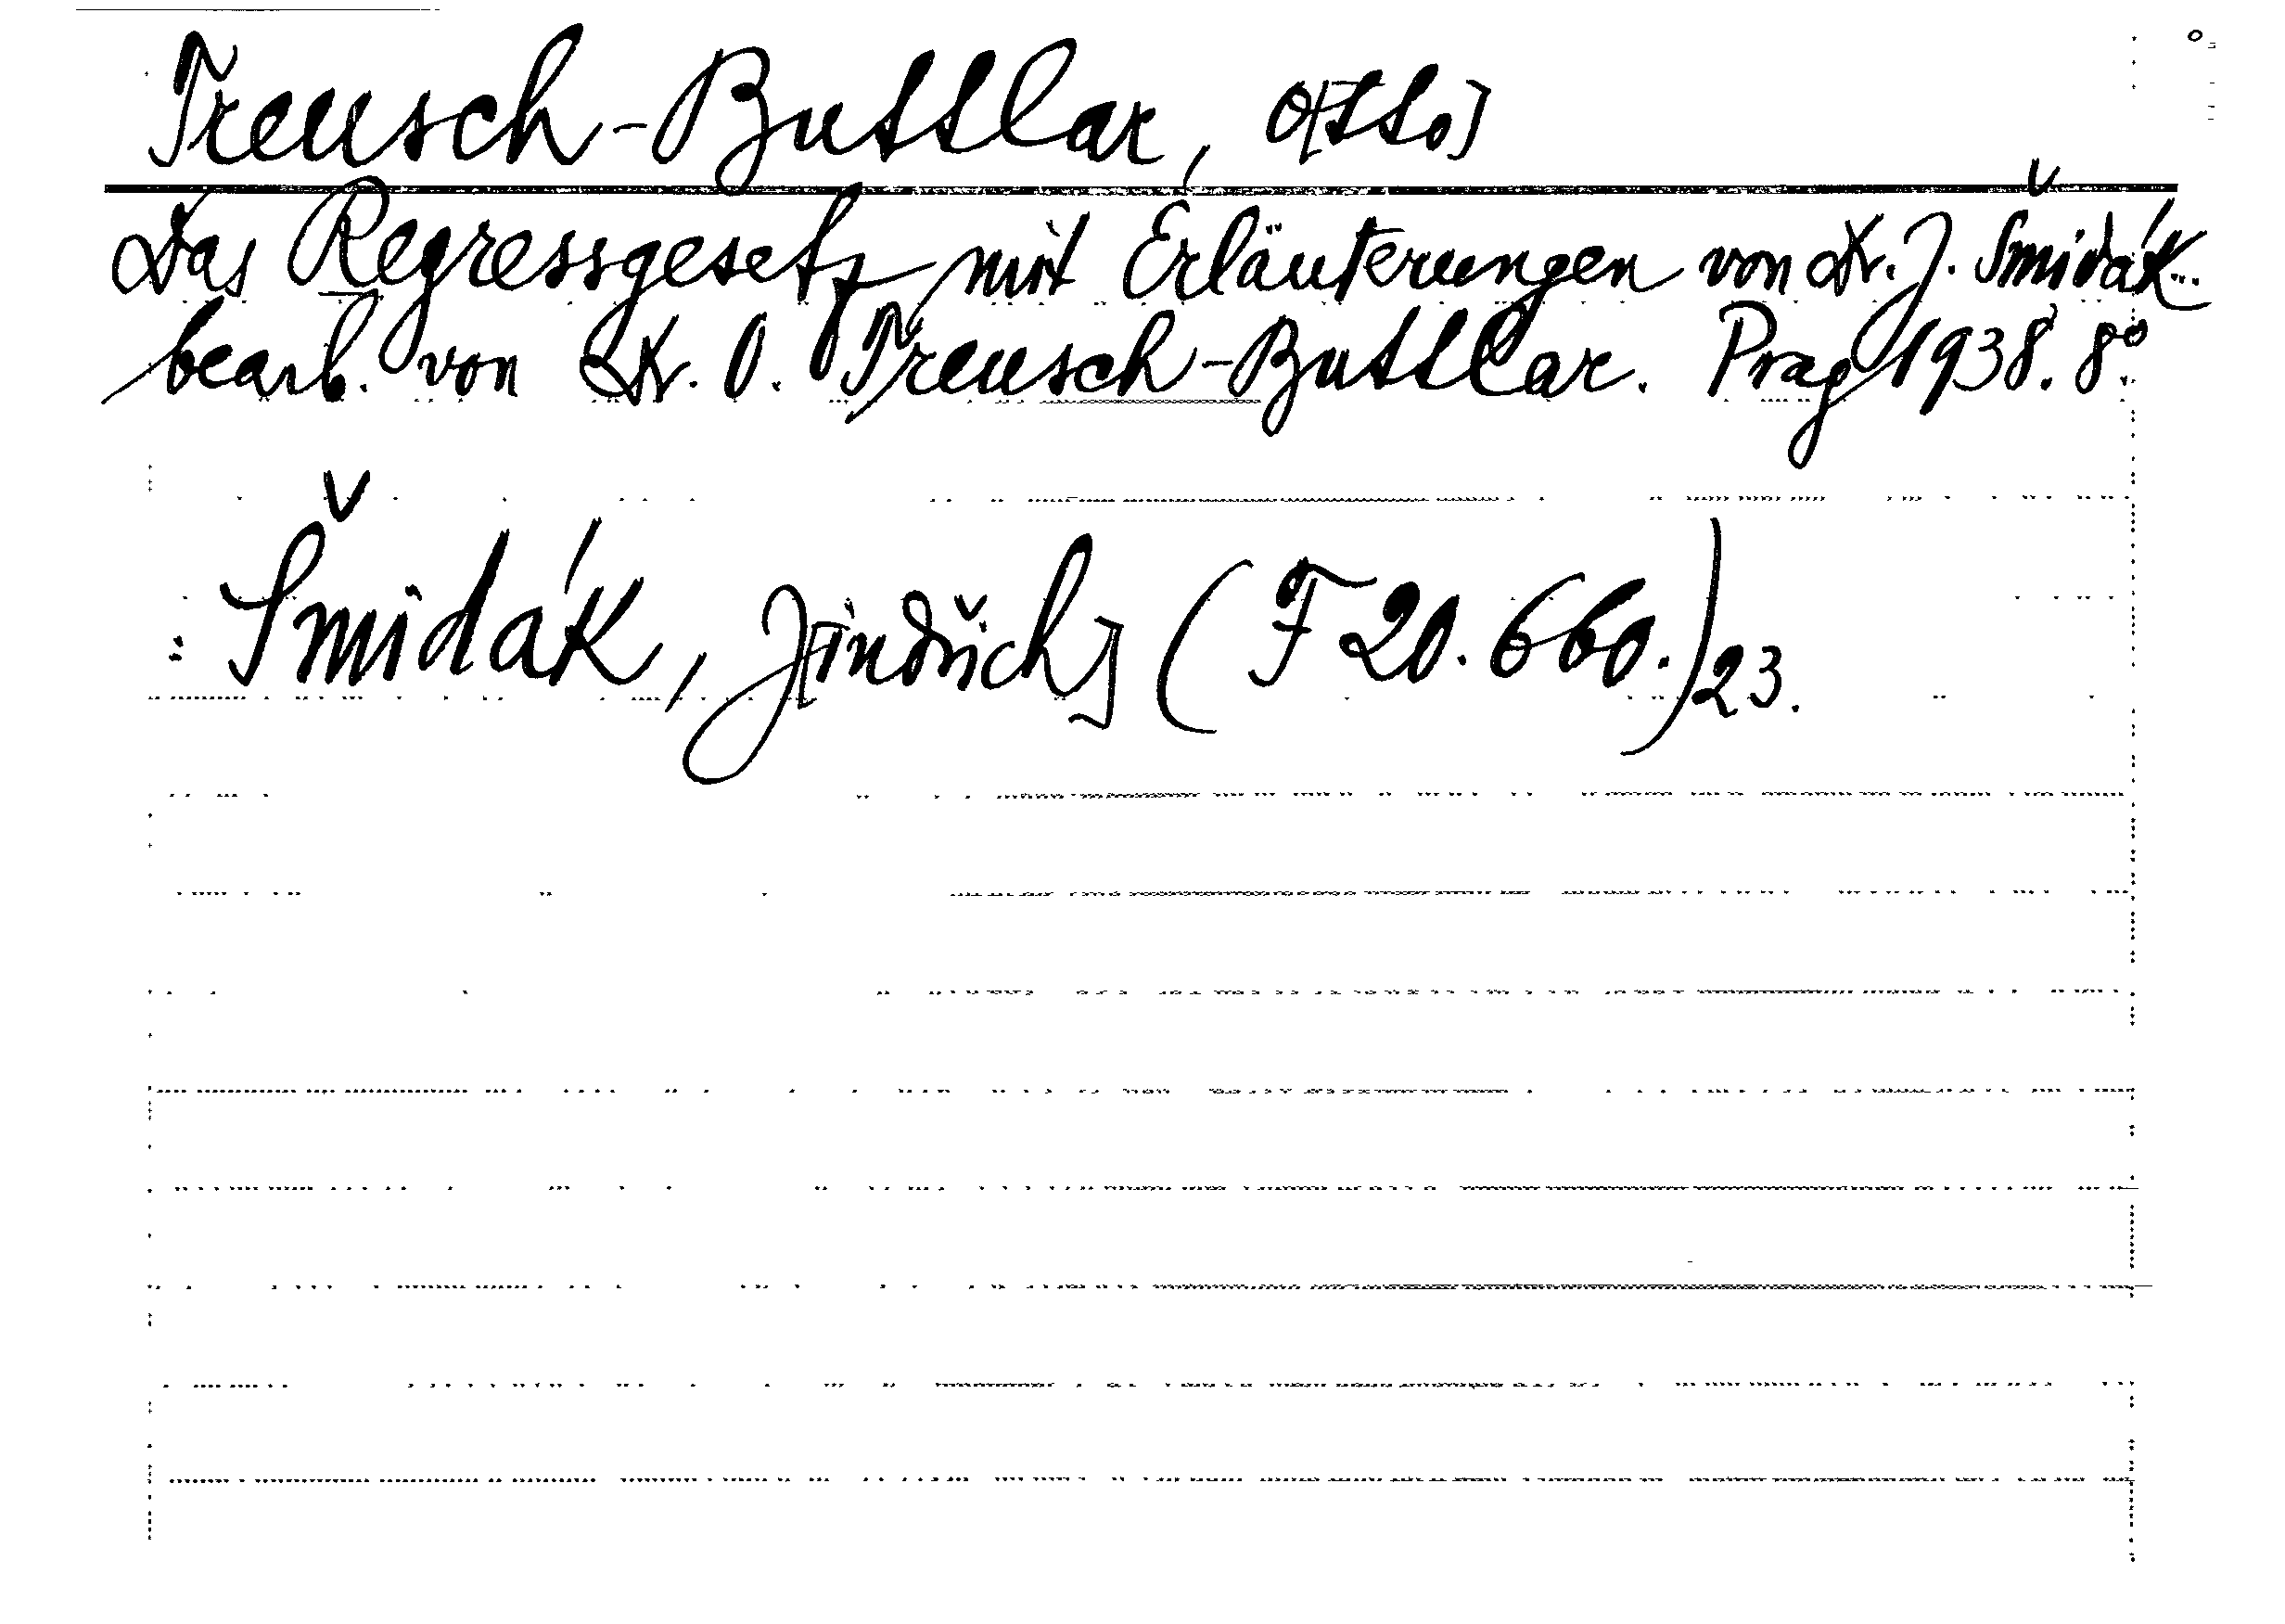 Treusch-Buttlar, O[tto]
Das Regressgesetz mit Erläuterungen von Dr. J. Šmidák..
bearb. von Dr. O. Treusch-Buttlar. Prag 1938. 8°.
: Šmidák, J[indřich] (F 20.660.) 23.